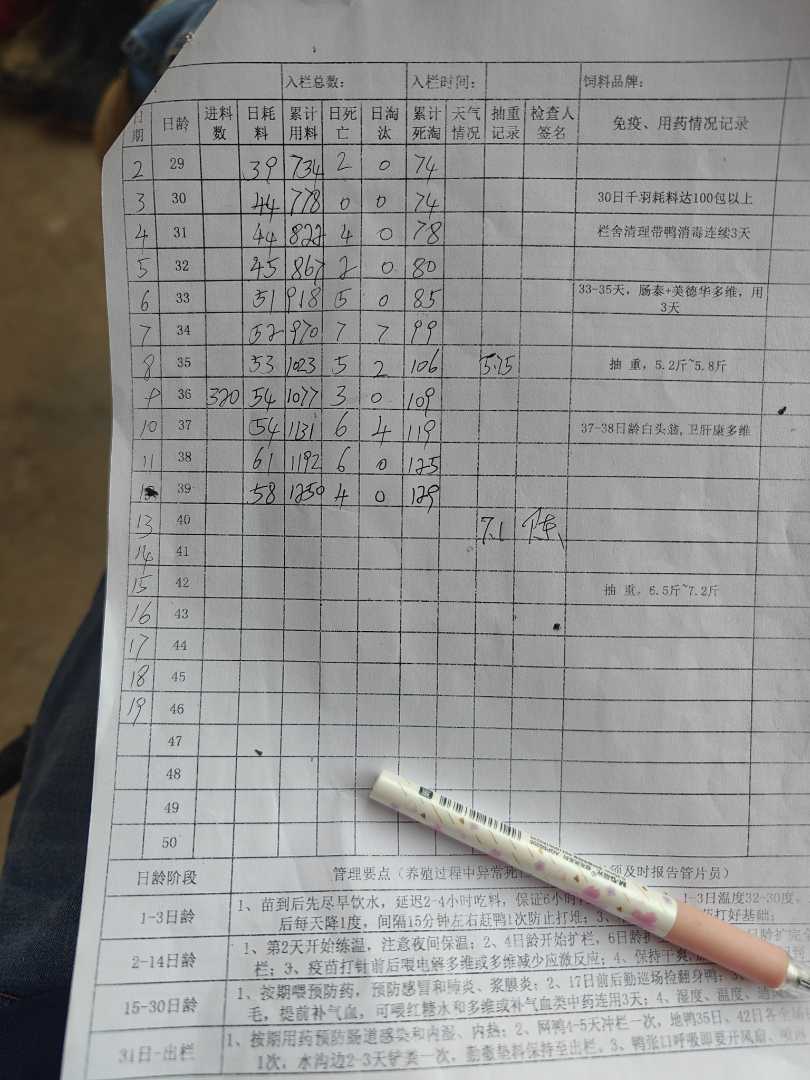 入栏总数： 入栏时间： 饲料品牌：
日期 日龄 进料数 日耗料 累计用料 日死亡 日淘汰 累计死淘 天气情况 抽重记录 检查人签名 免疫、用药情况记录
2 29 39 734 2 0 74
3 30 44 778 0 0 74 30日千羽耗料达100包以上
4 31 44 822 4 0 78 栏舍清理带鸭消毒连续3天
5 32 45 867 2 0 80
6 33 51 918 5 0 85 33-35天，肠泰+美德华多维，用3天
7 34 52 970 7 7 99
8 35 53 1023 5 2 106 5.75 抽 重，5.2斤~5.8斤
9 36 320 54 1077 3 0 109
10 37 54 1131 6 4 119 37-38日龄白头翁,卫肝康多维
11 38 61 1192 6 0 125
39 58 1250 4 0 129
13 40 7.1
14 41
15 42 抽 重，6.5斤~7.2斤
16 43
17 44
18 45
19 46
47
48
49
50
日龄阶段 管理要点（养殖过程中异常死 须及时报告管片员）
1-3日龄 1、苗到后先尽早饮水，延迟2-4小时吃料，保证6小时 1-3日温度32-30度，
后每天降1度，间隔15分钟左右赶鸭1次防止打堆；3、 打好基础；
2-14日龄 1、第2天开始练温，注意夜间保温；2、4日龄开始扩栏，6日龄扩
栏；3、疫苗打针前后喂电解多维或多维减少应激反应；4、保持干爽，
15-30日龄 1、按期喂预防药，预防感冒和肺炎、浆膜炎；2、17日前后勤巡场捡翻身鸭；3、
毛，提前补气血，可喂红糖水和多维或补气血类中药连用3天；4、湿度、温度、通风
31日-出栏 1、按期用药预防肠道感染和内湿、内热；2、网鸭4-5天冲栏一次，地鸭35日、42日各全场
1次，水沟边2-3天铲粪一次，勤撒垫料保持至出栏。3、鸭张口呼吸即要开风扇、喷淋